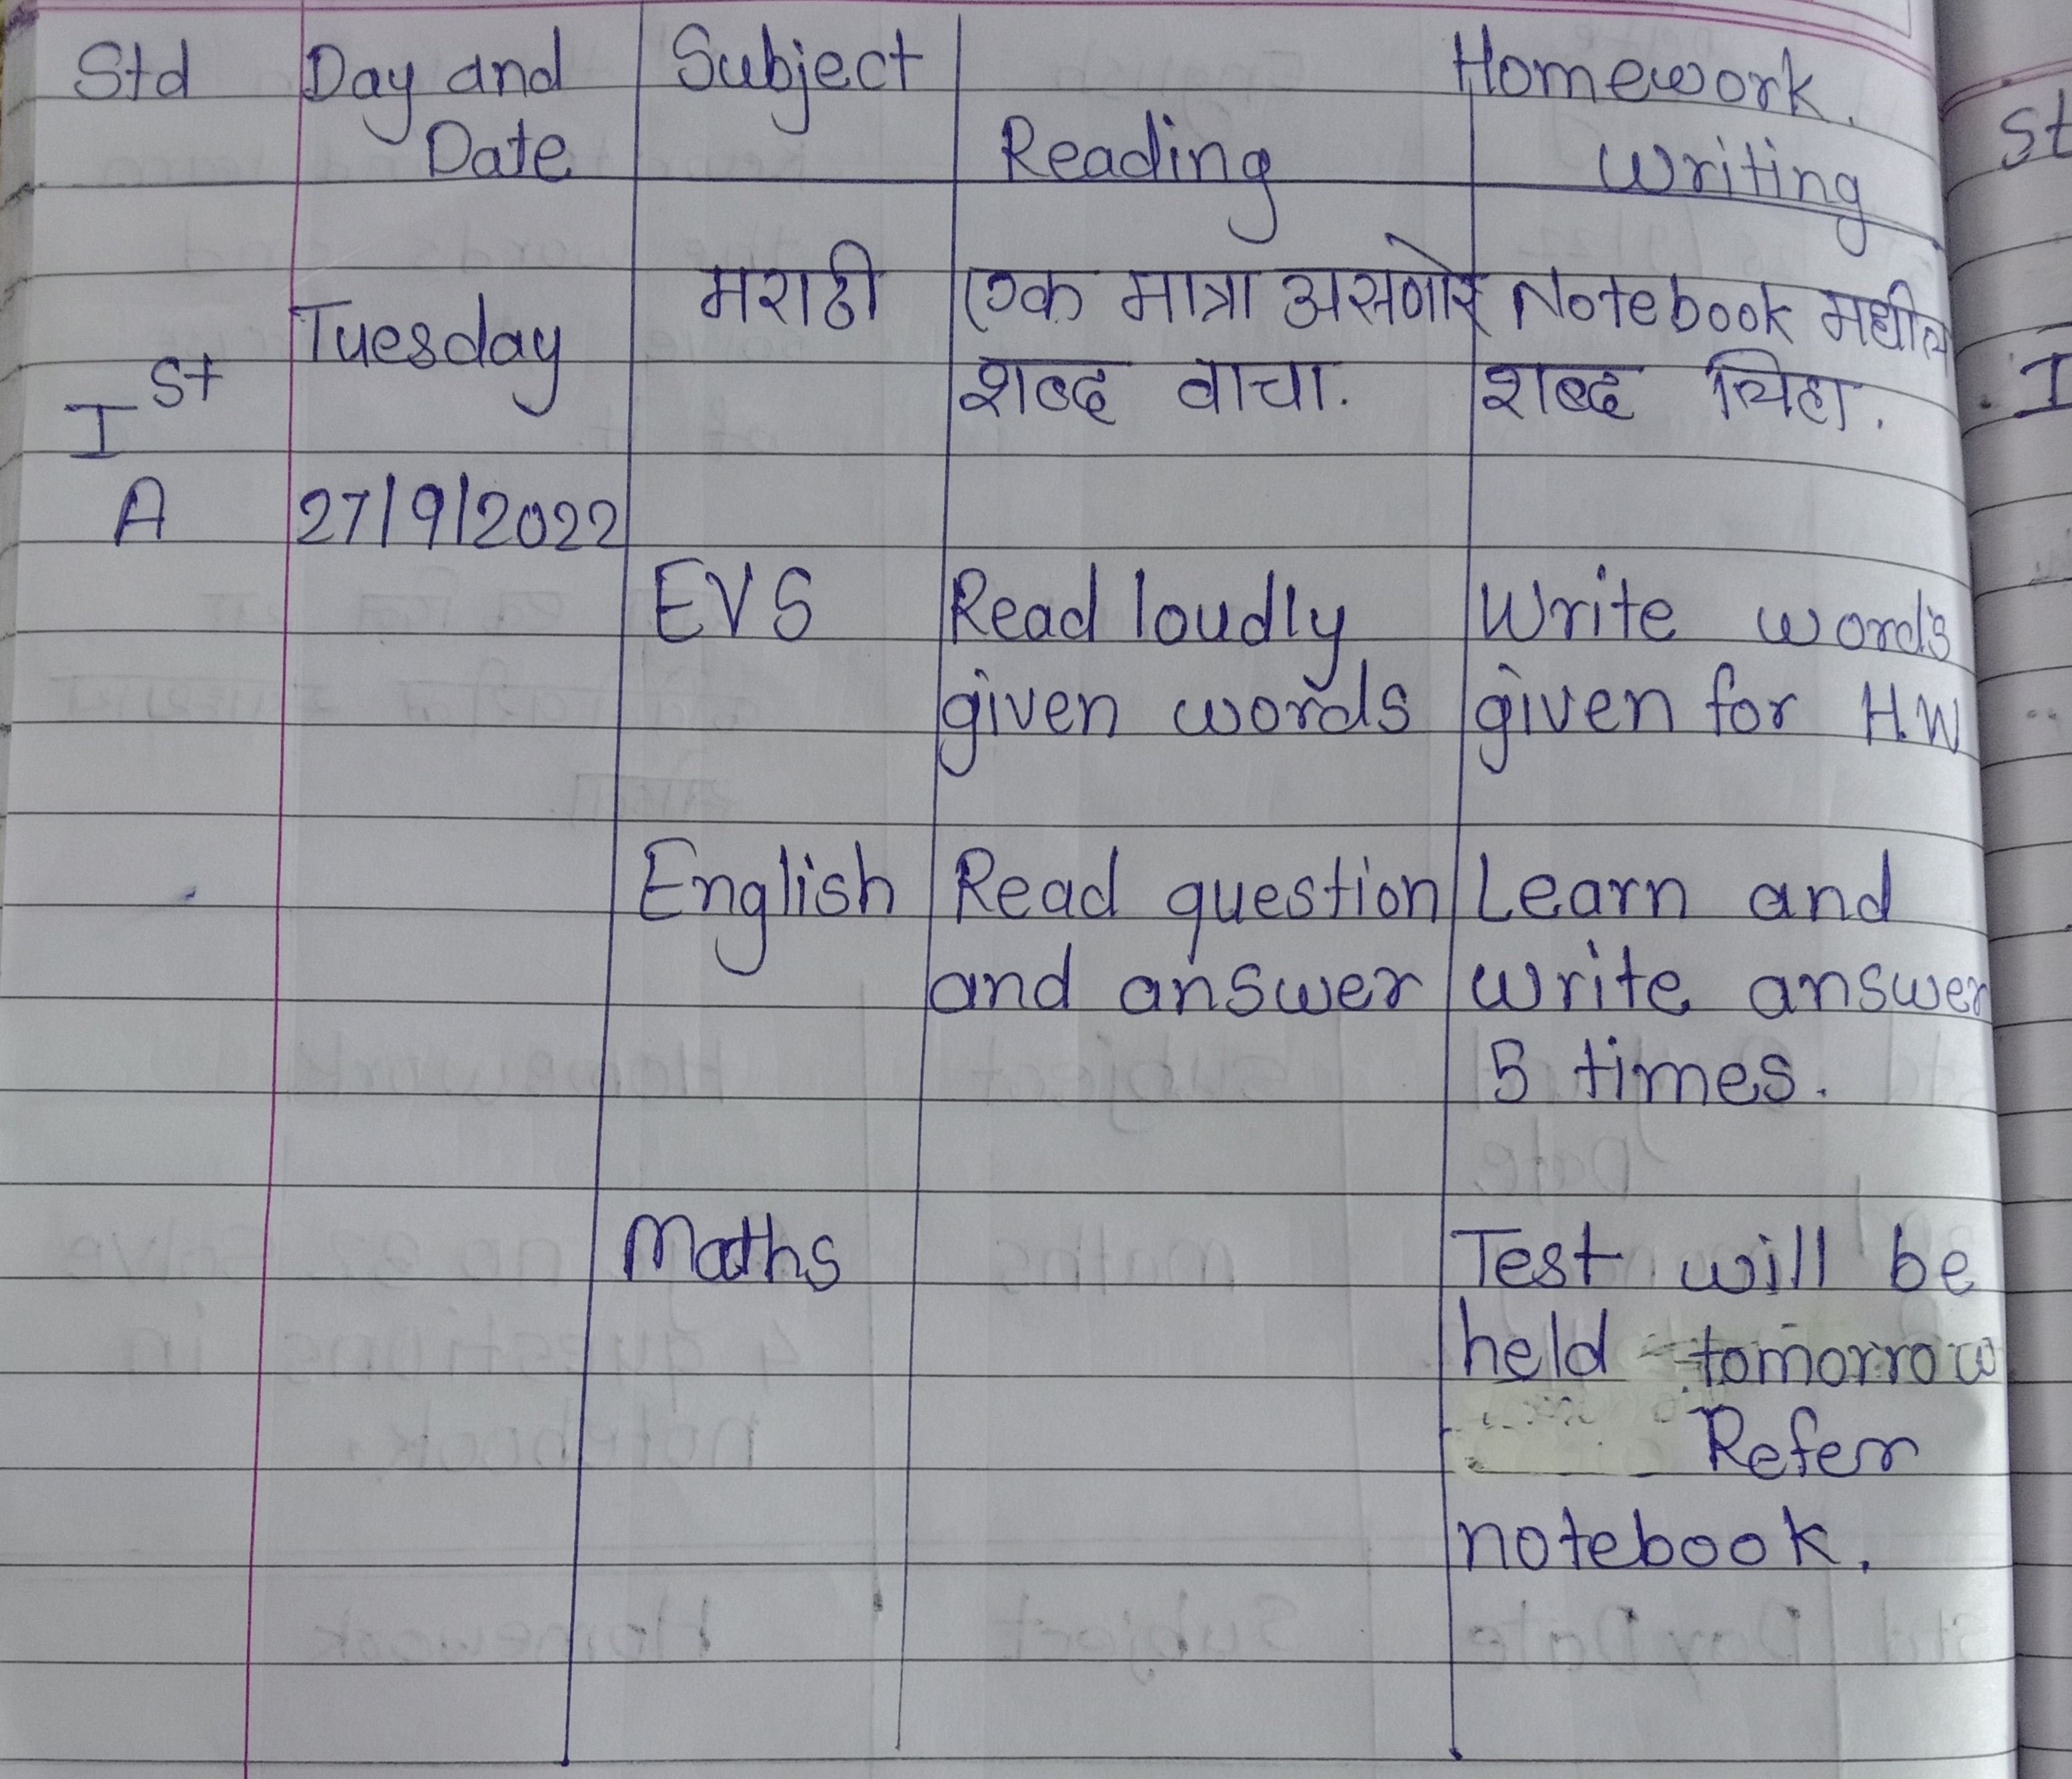 Std Day and Subject Homework.
Date Reading Writing
Tuesday मराठी एक मात्रा असणारे Notebook मधील
Ist शब्द वाचा. शब्द लिहा.
A 27/9/2022
EVS Read loudly Write words
given words given for H.W
English Read question Learn and
and answer write answer
5 times.
Maths Test will be
held tomorrow
Refer
notebook.
St
I